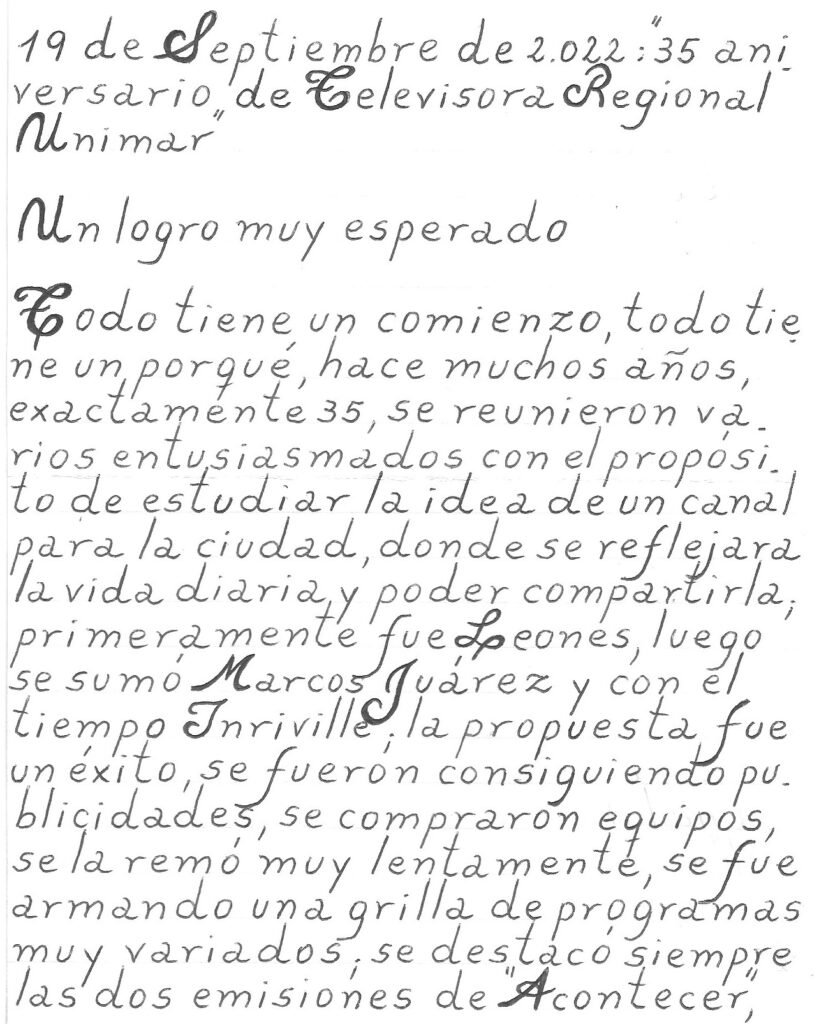 19 de Septiembre de 2.022: "35 ani-
versario de Televisora Regional
Unimar"
Un logro muy esperado
Todo tiene un comienzo, todo tie-
ne un porqué, hace muchos años,
exactamente 35, se reunieron va-
rios entusiasmados con el propósi-
to de estudiar la idea de un canal
para la ciudad, donde se reflejara
la vida diaria y poder compartirla;
primeramente fue Leones, luego
se sumó Marcos Juárez y con el
tiempo Inriville; la propuesta fue
un éxito, se fueron consiguiendo pu-
blicidades, se compraron equipos,
se la remó muy lentamente, se fue
armando una grilla de programas
muy variados; se destacó siempre
las dos emisiones de "Acontecer",